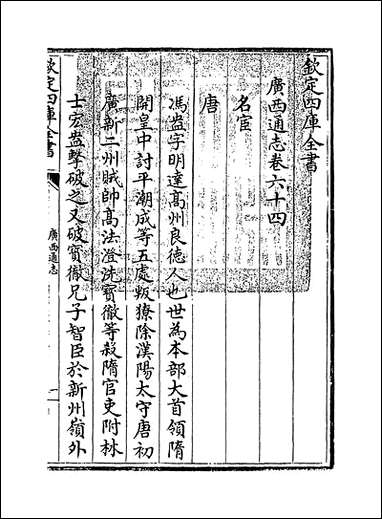 欽定四庫全書
廣西通志卷六十四
名宦
唐
馮盎字明達高州良德人也世為本部大首領隋
開皇中討平潮成等五處叛獠除漢陽太守唐初
廣新二州賊帥高法澄洗寳徹等殺隋官吏附林
士宏盎擊破之又破寳徹兄子智臣於新州嶺外
欽定四庫全書
廣西通志
一